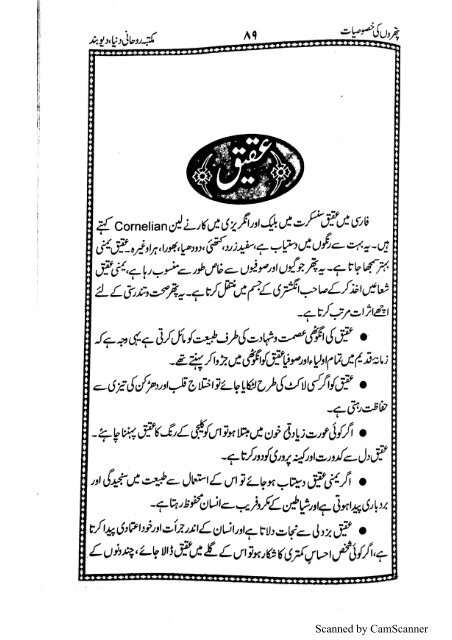 پتھروں کی خصوصیات ۸۹ مکتبہ روحانی دنیا، دیوبند
عقیق
فارسی میں عقیق سنسکرت میں بلیک اور انگریزی میں کارنے لین Cornelian کہتے
ہیں۔ یہ بہت سے رنگوں میں دستیاب ہے، سفید زرد، کتھئی، دودھیا، بھورا، ہرا وغیرہ۔ عقیق یمنی
بہتر سمجھا جاتا ہے۔ یہ پتھر جوگیوں اور صوفیوں سے خاص طور سے منسوب رہا ہے، یمنی عقیق
شعاعیں اخذ کر کے صاحب انگشتری کے جسم میں منتقل کرتا ہے۔ یہ پتھر صحت و تندرستی کے لئے
اچھے اثرات مرتب کرتا ہے۔
● عقیق کی انگوٹھی عصمت و شہادت کی طرف طبیعت کو مائل کرتی ہے یہی وجہ ہے کہ
زمانہ قدیم میں تمام اولیاء اور صوفیا عقیق کو انگوٹھی میں جڑوا کر پہنتے تھے۔
● عقیق کو اگر کسی لاکٹ کی طرح لٹکایا جائے تو اختلاج قلب اور دھڑکن کی تیزی سے
حفاظت رہتی ہے۔
● اگر کوئی عورت زیادتی خون میں مبتلا ہو تو اس کو کلیجی کے رنگ کا عقیق پہننا چاہئے۔
عقیق دل سے کدورت اور کینہ پروری کو دور کرتا ہے۔
● اگر یمنی عقیق دستیاب ہو جائے تو اس کے استعمال سے طبیعت میں سنجیدگی اور
بردباری پیدا ہوتی ہے اور شیاطین کے مکر و فریب سے انسان محفوظ رہتا ہے۔
● عقیق بزدلی سے نجات دلاتا ہے اور انسان کے اندر جرأت اور خود اعتمادی پیدا کرتا
ہے، اگر کوئی شخص احساس کمتری کا شکار ہو تو اس کے گلے میں عقیق ڈالا جائے، چند دنوں کے
Scanned by CamScanner